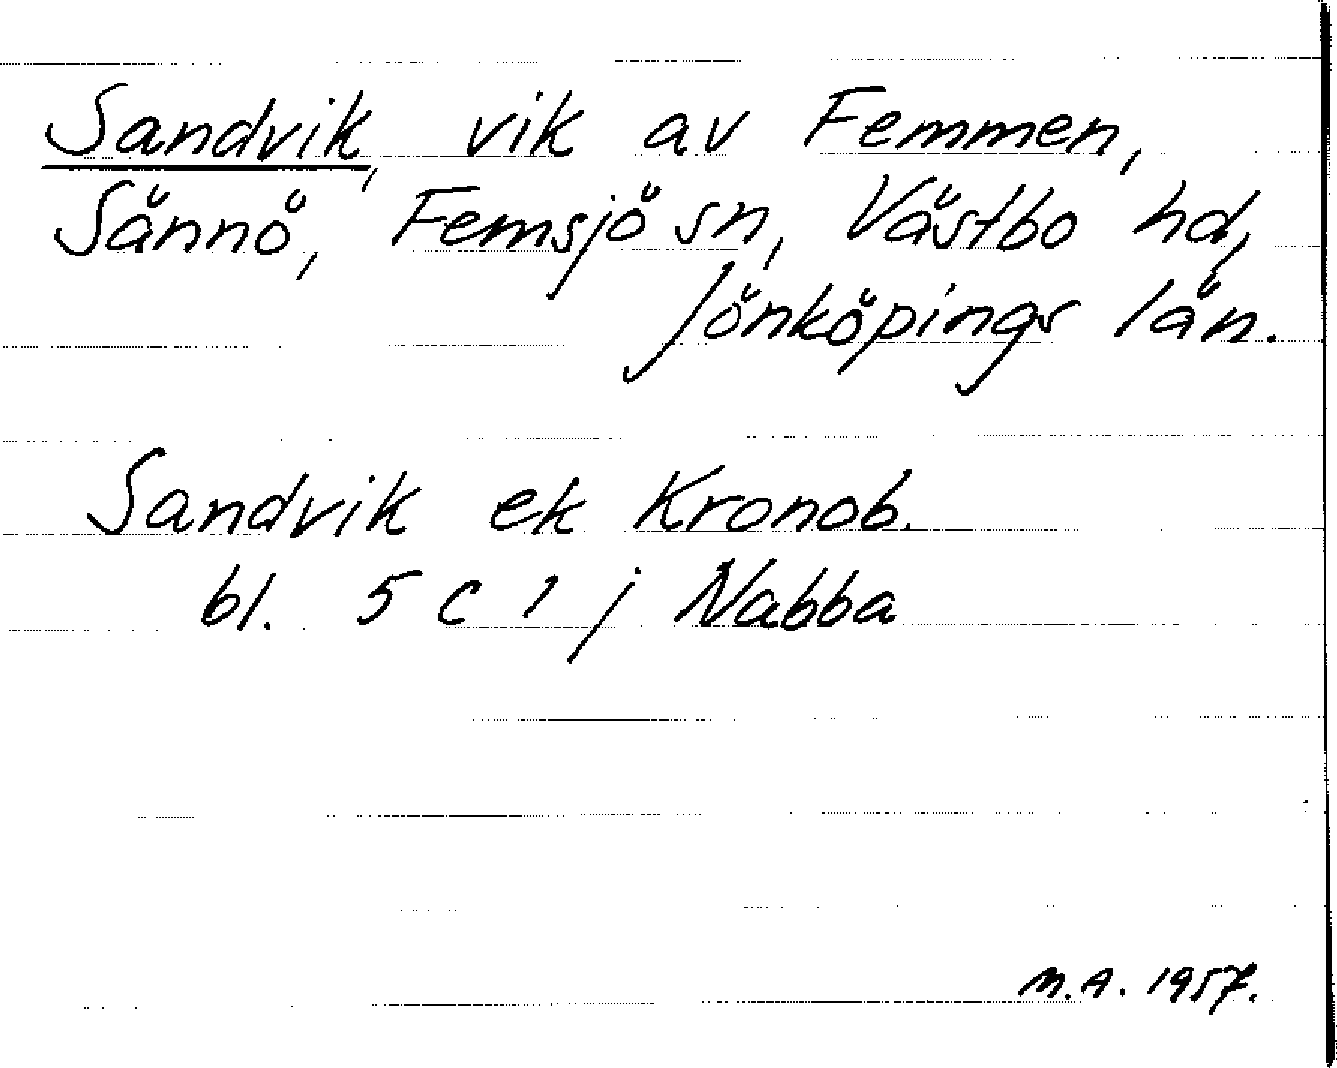 Sandvik, vik av Femmen,
Sännö, Femsjö sn, Västbo hd,
Jönköpings län.
Sandvik ek Kronob.
bl. 5 c 1 j Nabba
M.A. 1957.